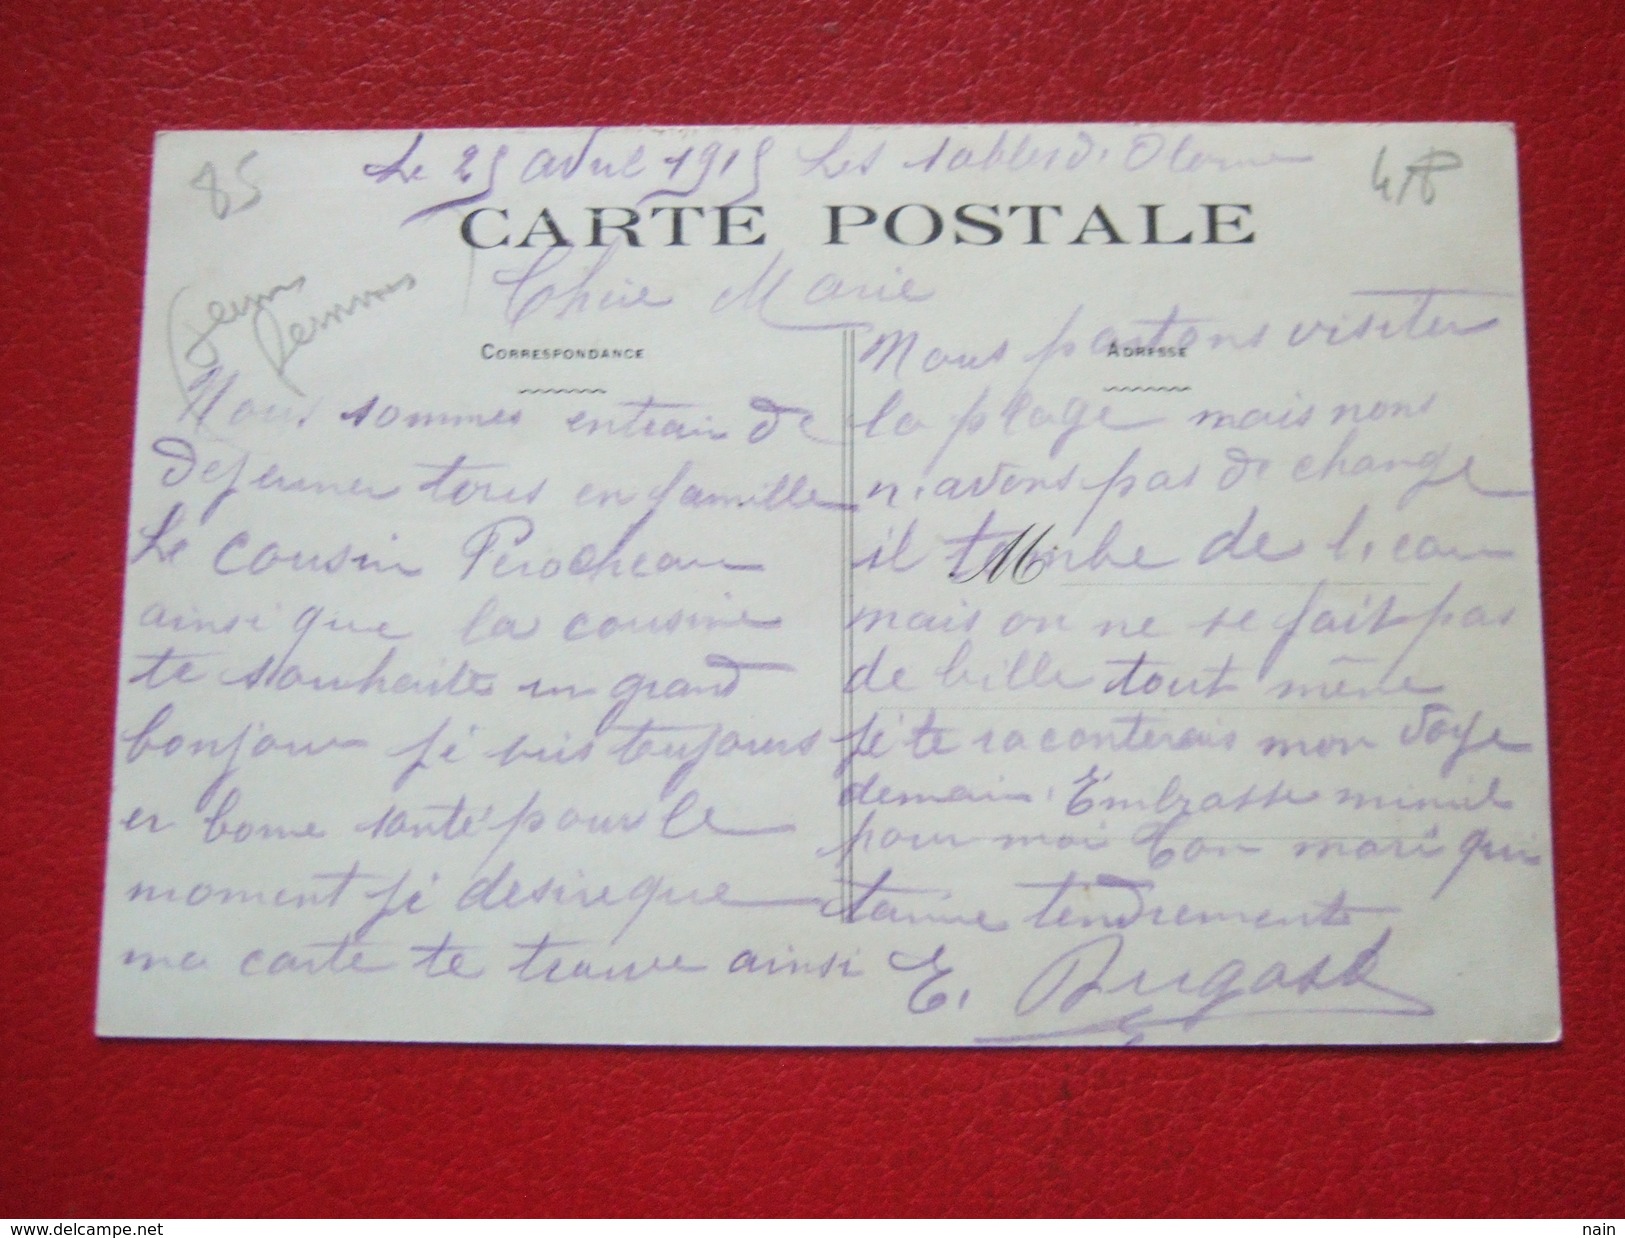 Le 25 avril 1915 Les Sables d'Olonne
85
418
CARTE POSTALE
Chère Marie
CORRESPONDANCE
ADRESSE
Nous sommes entrain de
dejeuner tous en famille
Le cousin Perocheau
ainsi que la cousine
te souhaite un grand
bonjour je suis toujours
en bonne santé pour le
moment je desire que
ma carte te trouve ainsi
Nous partons visiter
la plage mais nous
n'avons pas de change
il tombe de l'eau
M
mais on ne se fait pas
de bille tout même
je te raconterais mon voyage
demain. Embrasse mimil
pour moi Ton mari qui
t'aime tendrement
E. Dugast
www.delcampe.net
nain